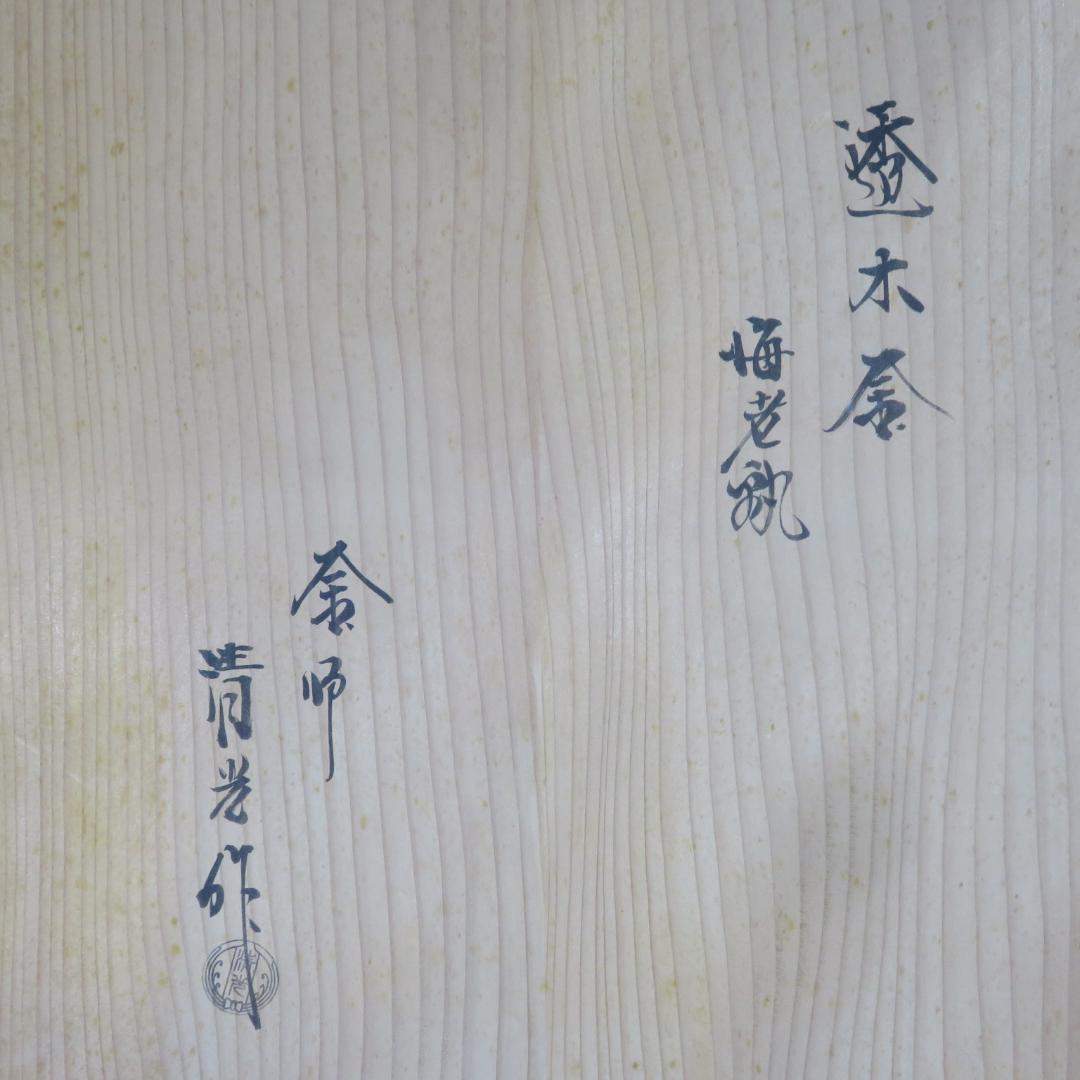 透木釜
海老釻
釜師
清光作